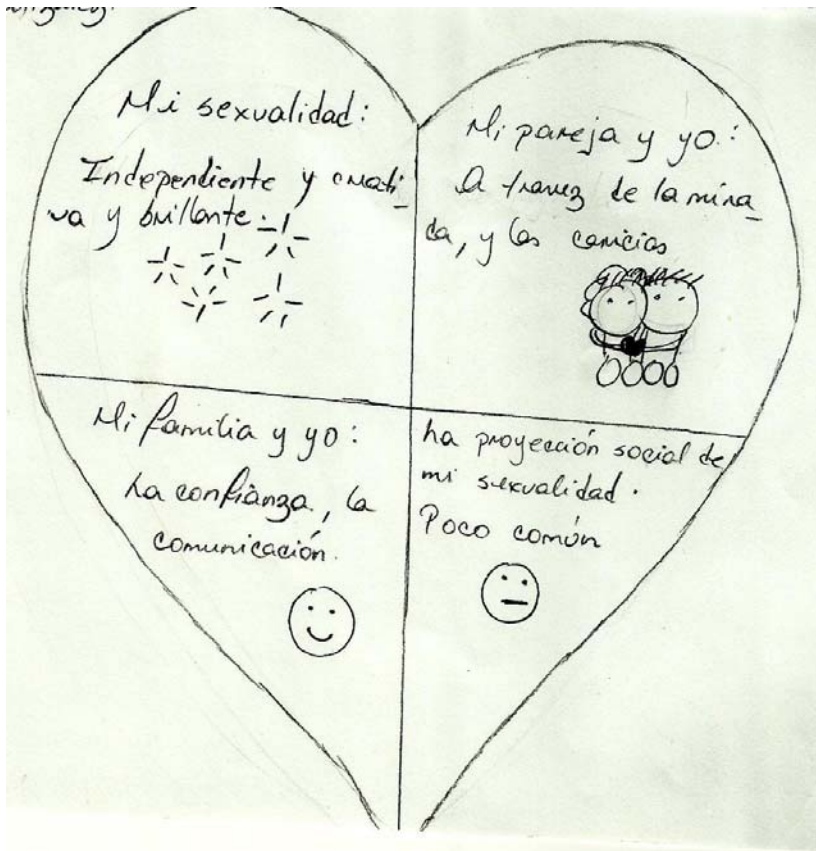 Mi sexualidad:
Independiente y creati-
va y brillante.
Mi pareja y yo:
A travez de la mira_
da, y las caricias
Mi familia y yo:
La confianza, la
comunicación.
La proyección social de
mi sexualidad.
Poco común